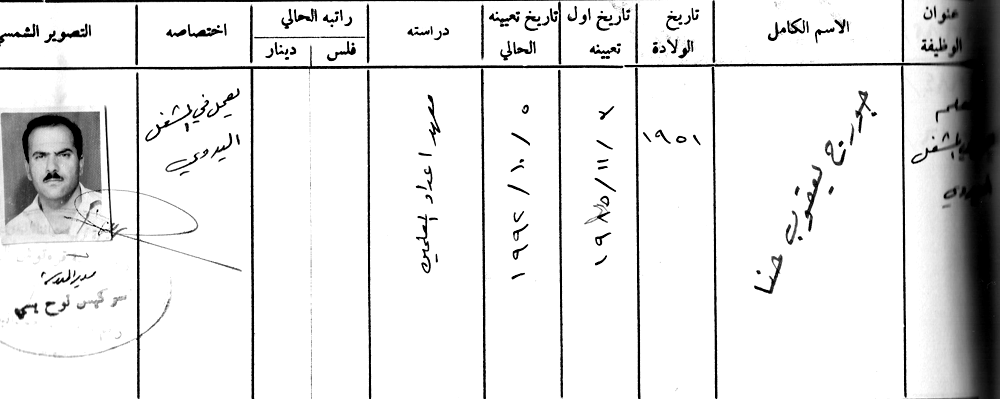 عنوان
الوظيفة
الاسم الكامل
تاريخ
الولادة
تاريخ اول
تعيينه
تاريخ تعيينه
الحالي
دراسته
راتبه الحالي
فلس
دينار
اختصاصه
التصوير الشمسي
معلم
في المشغل
اليدوي
جورج يعقوب حنا
١٩٥١
١٩٨٥/١١/٢
١٩٩٢/١٠/٥
معهد اعداد المعلمين
يعمل في المشغل
اليدوي
مدير المدرسة
سركيس نوح